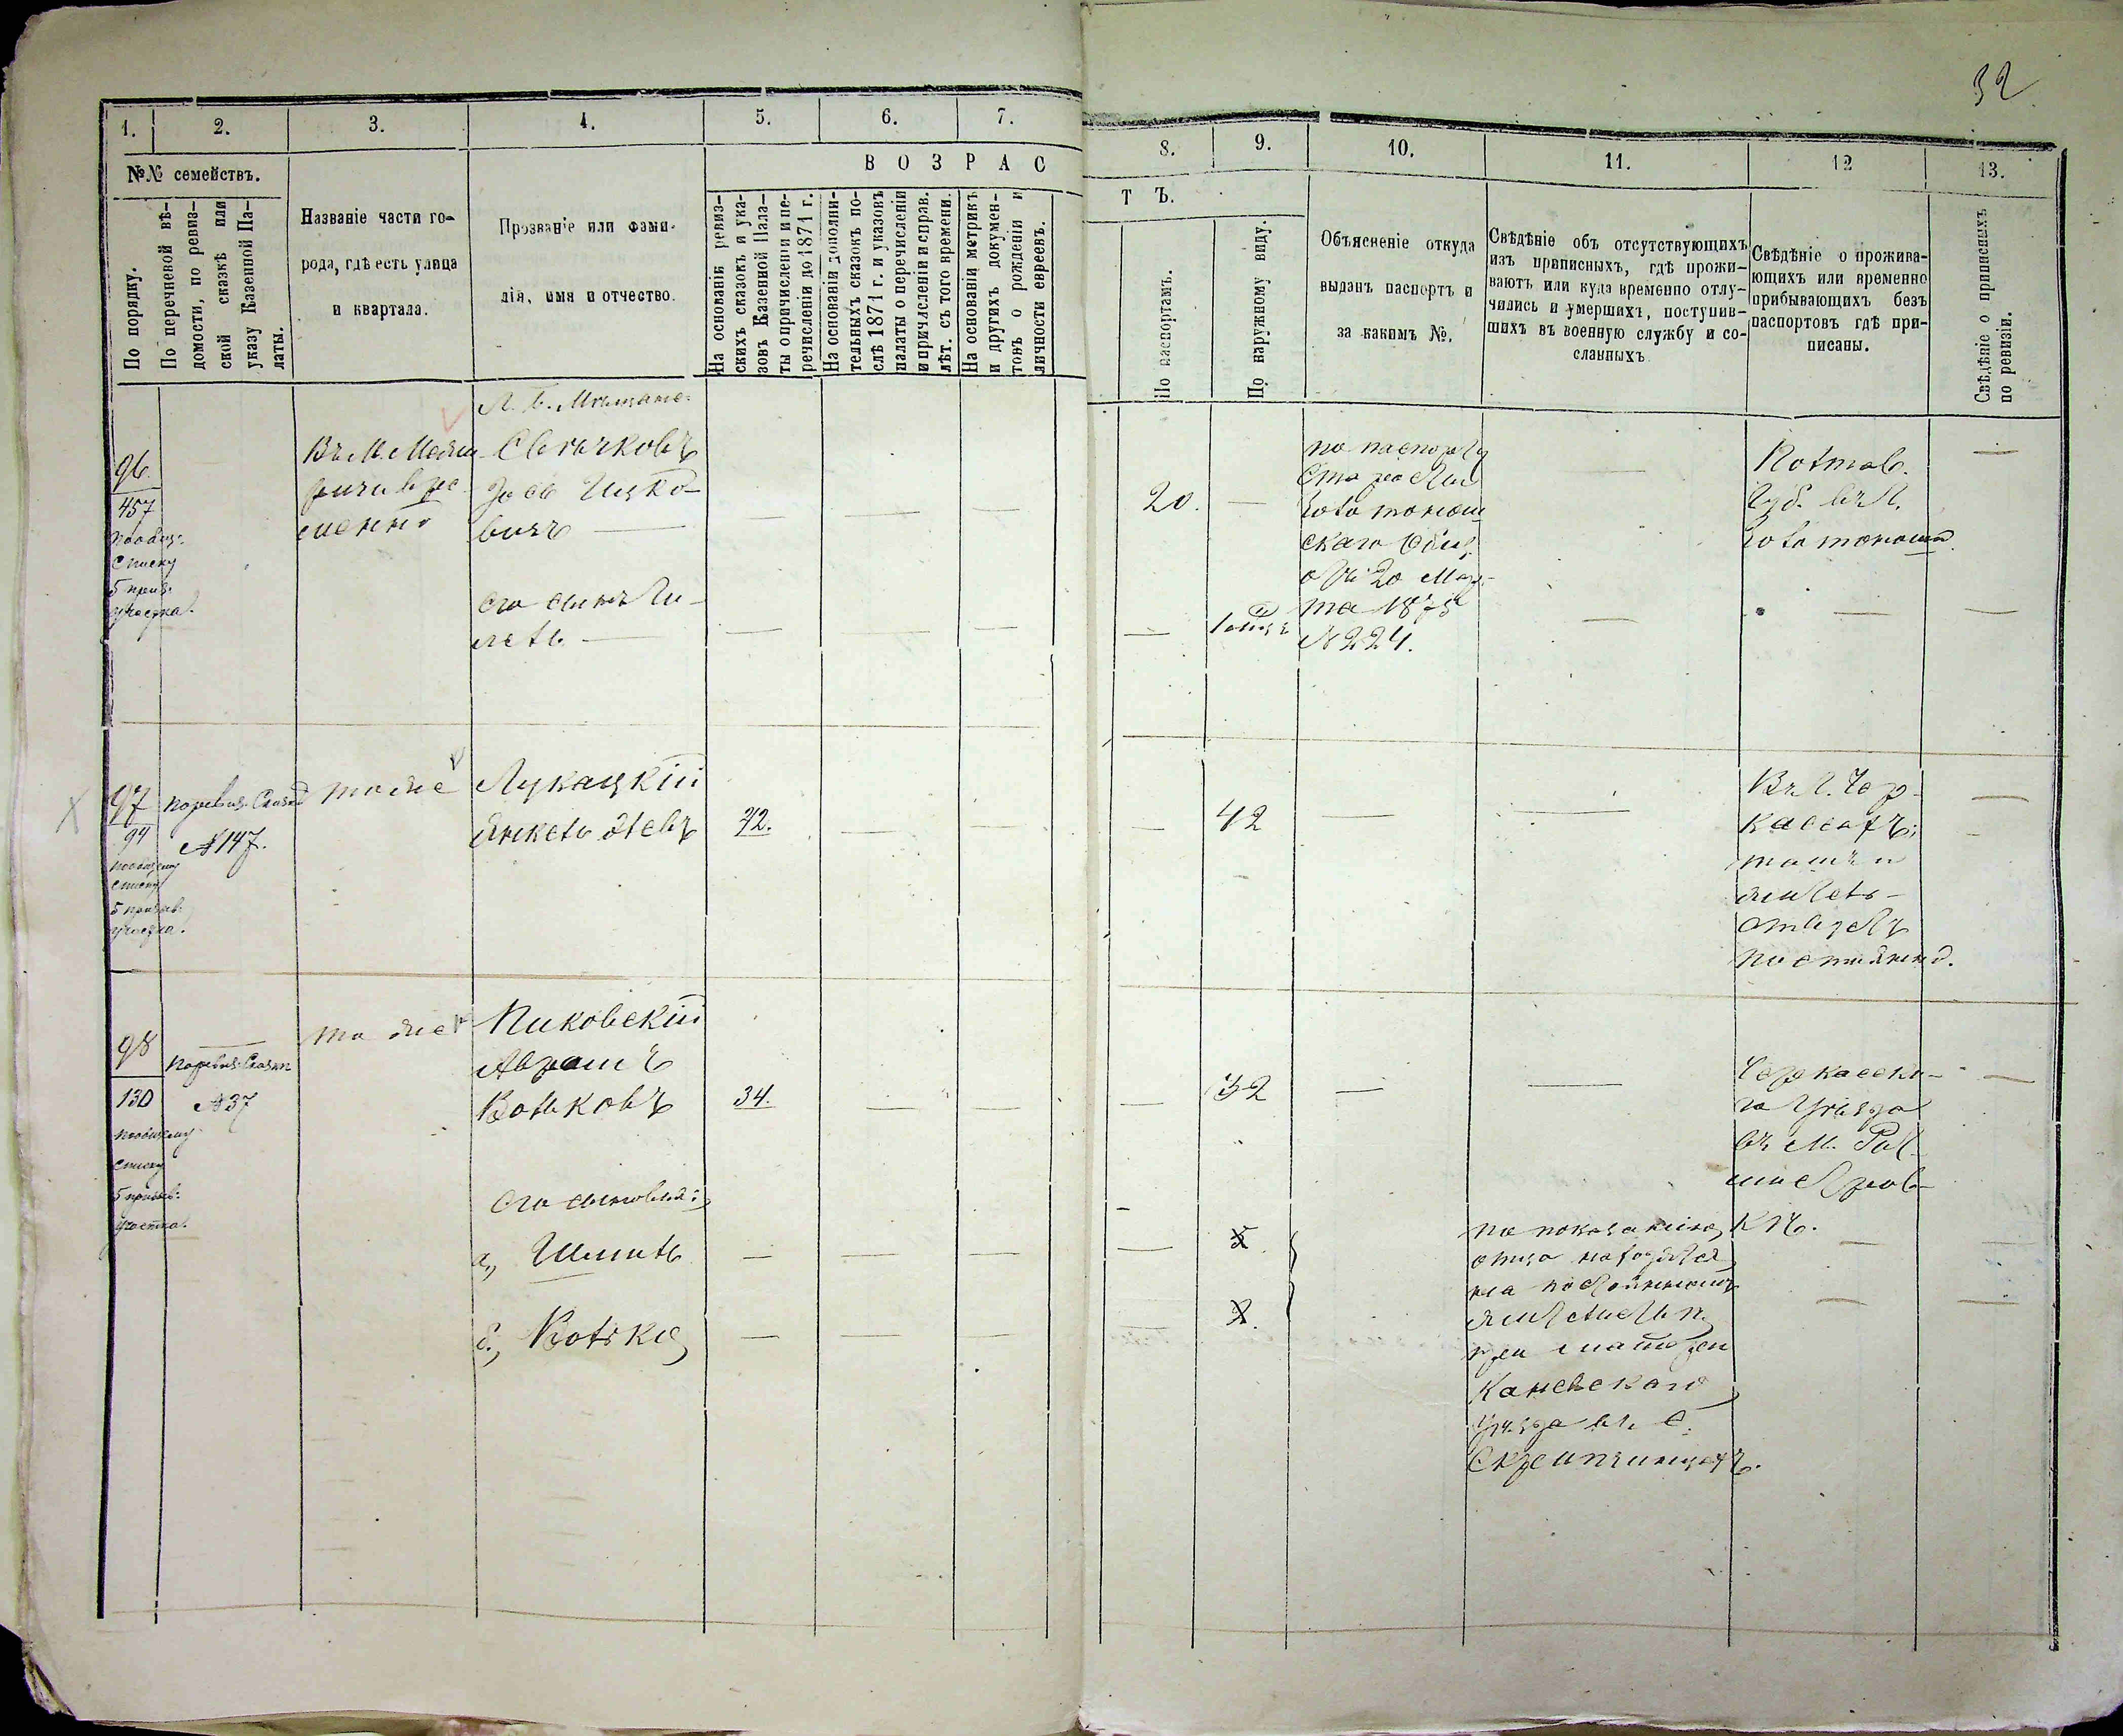 32
1.
2.
3.
4.
5.
6.
7.
8.
9.
10.
11.
12
13.
№№ семействъ.
По порядку.
По перечневой вѣ-
домости, по ревиз-
ской сказкѣ или
указу Казенной Па-
латы.
Названіе части го-
рода, гдѣ есть улица
и квартала.
Прозваніе или фами-
лія, имя и отчество.
ВОЗРАС
ТЪ.
На основаніи ревиз-
скихъ сказокъ и ука-
зовъ Казенной Пала-
ты о причисленіи и пе-
речисленіи до 1871 г.
На основаніи дополни-
тельныхъ сказокъ по-
слѣ 1871 г. и указовъ
палаты о перечисленіи
и причисленіи и справ.
лѣт. съ того времени.
На основаніи метрикъ
и другихъ докумен-
товъ о рожденіи и
личности евреевъ.
По паспортамъ.
По наружному виду.
Объясненіе откуда
выданъ паспортъ и
за какимъ №.
Свѣдѣніе объ отсутствующихъ
изъ приписныхъ, гдѣ прожи-
ваютъ или куда временно отлу-
чились и умершихъ, поступив-
шихъ въ военную службу и со-
сланныхъ
Свѣдѣніе о прожива-
ющихъ или временно
прибывающихъ безъ
паспортовъ гдѣ при-
писаны.
Свѣдѣніе о приписныхъ
по ревизіи.
96
457
списку
5 приз:
участка.
Въ М.
Ицко-
вичъ
его сынъ
20.
по паспорту
скаго Общ.
отъ 20 Мар-
та 1875
№ 224.
Полтав.
Губ. въ
97
94
по общему
списку
5 призыв:
участка.
по ревиз. Сказкѣ
№ 147.
тоже
Лукацкій
Янкель
42
Въ Г. Чер-
кассахъ;
тамъ и
житель-
ствуетъ
постоянно.
98
130
по общему
списку
5 призыв:
участка.
по ревиз. Сказки
№ 37
тоже
Пиковскій
Аврамъ
Вольковъ
34.
32
Черкасска-
го Уѣзда
въ М.
его сыновья:
а, Шмиль
б, Волько
по показанію
отца находятся
на постоянномъ
жительствѣ
при матери
Каневскаго
Уѣзда въ с.